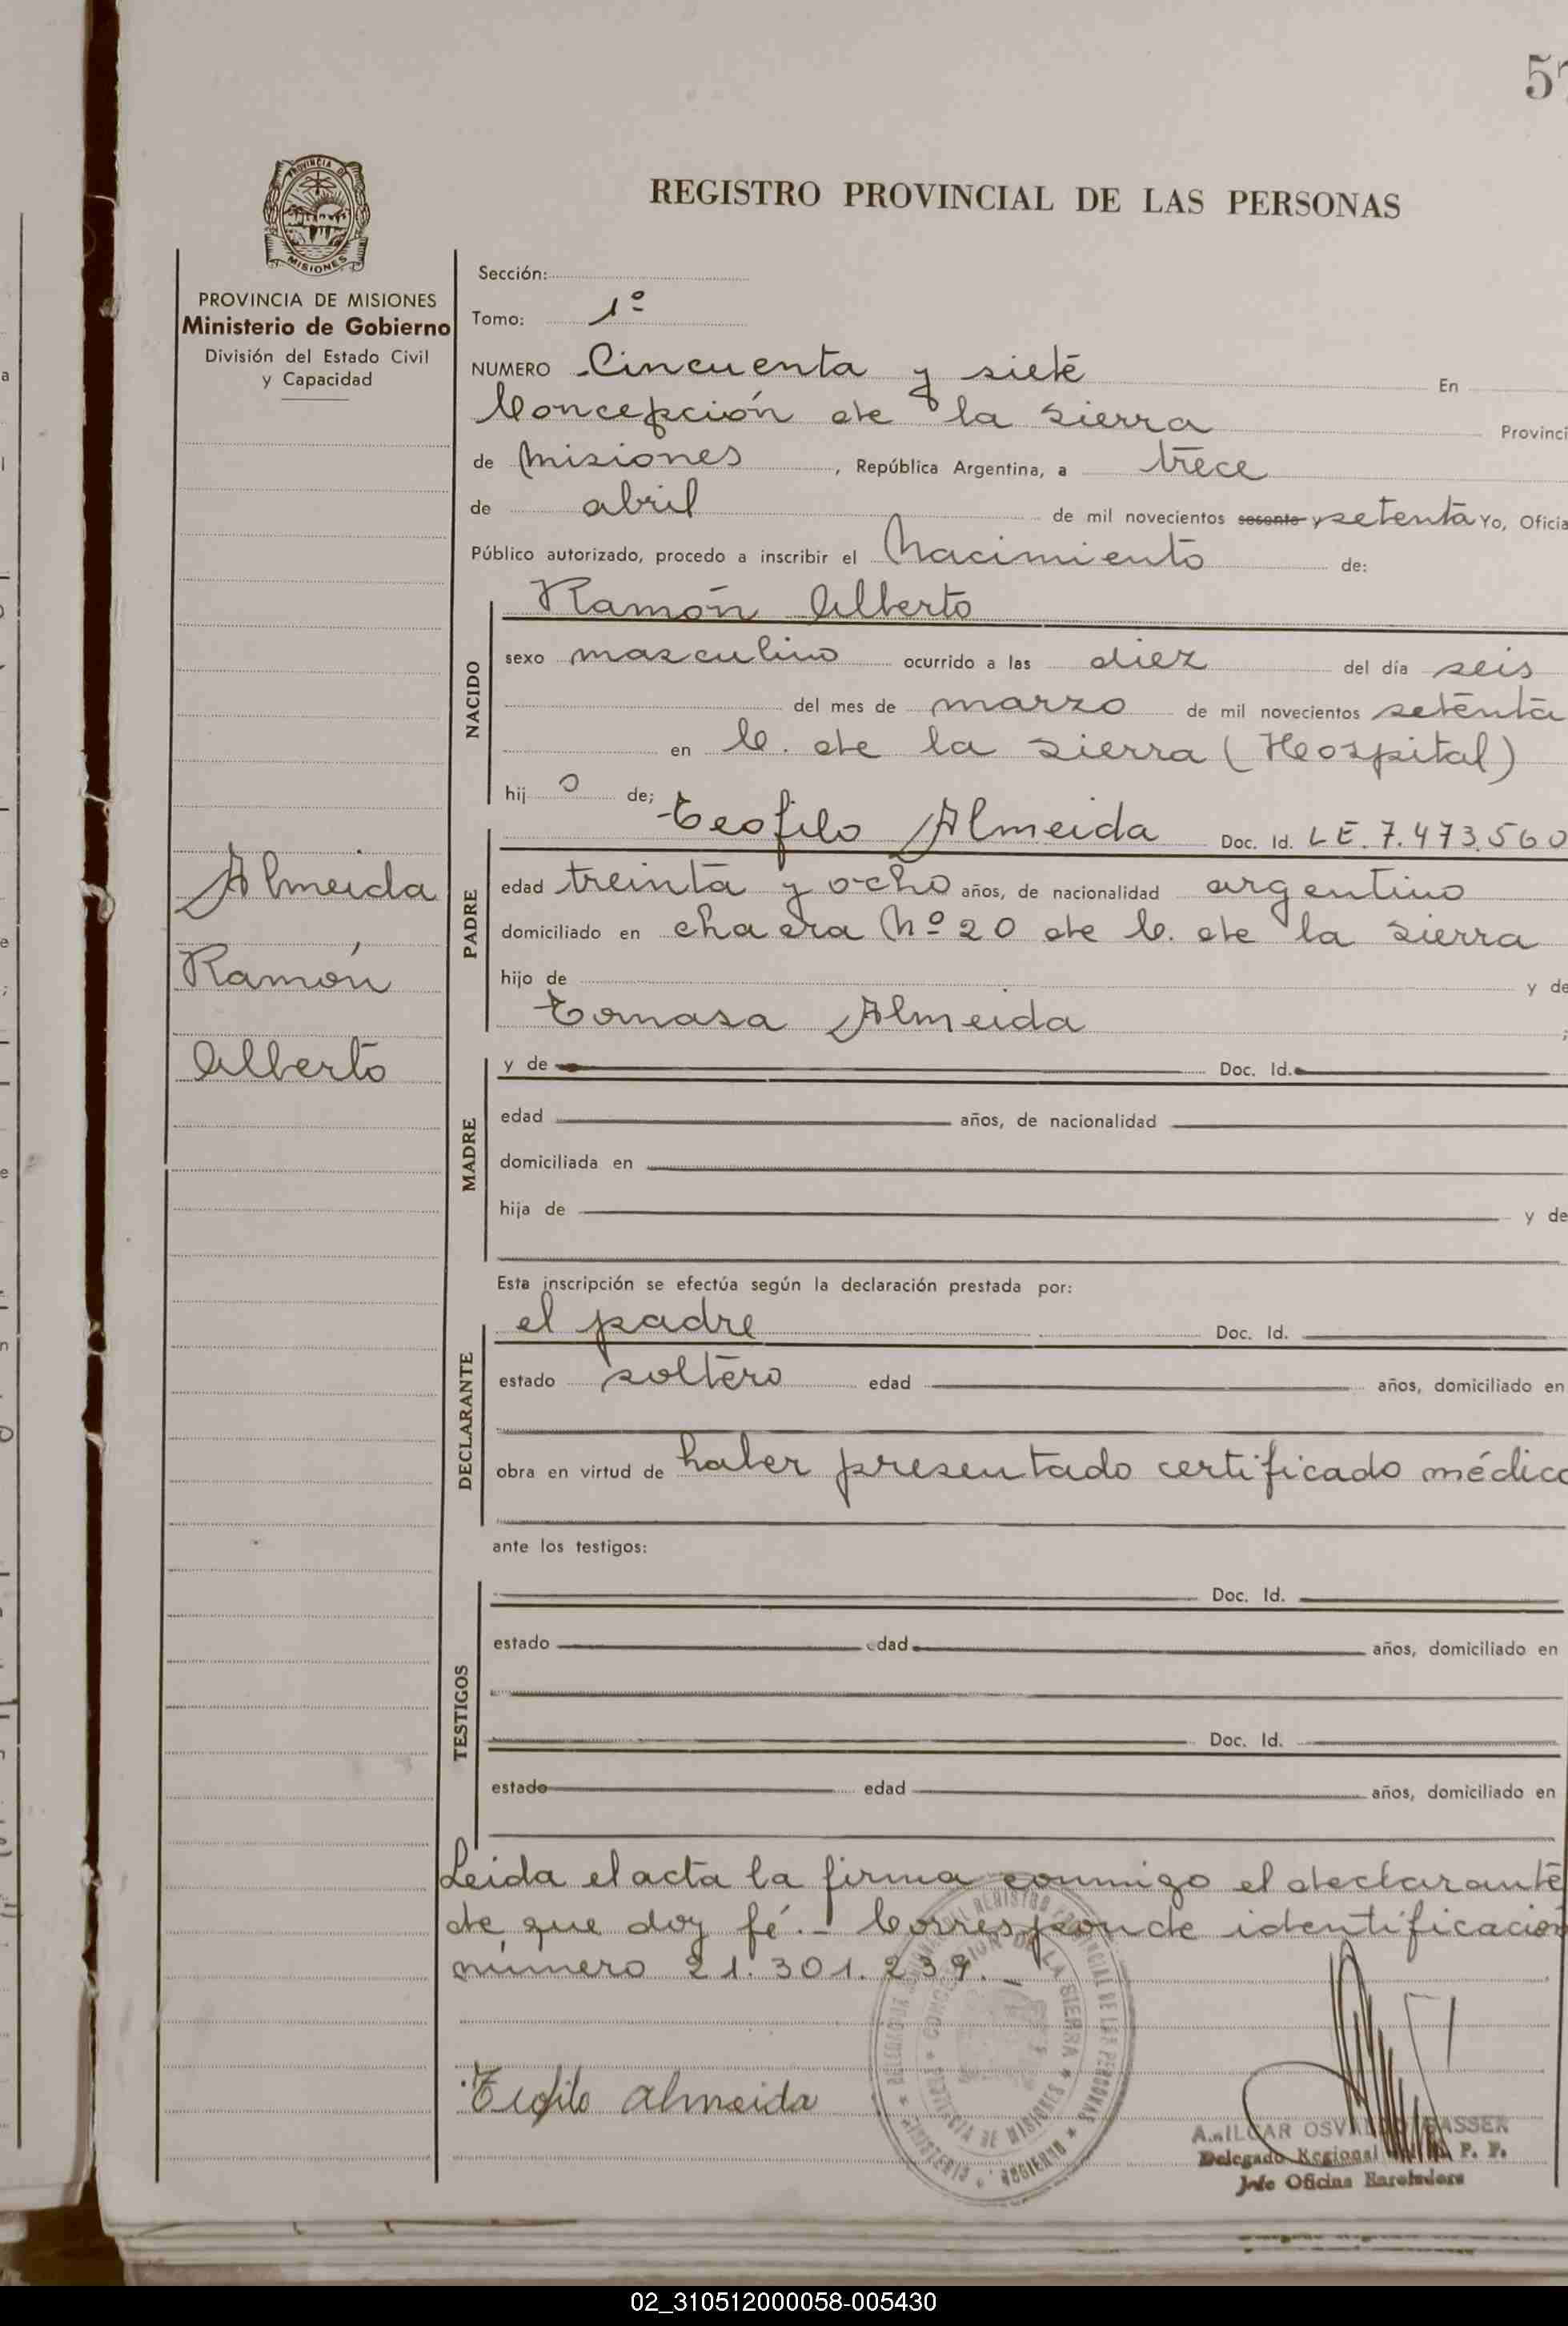 57
REGISTRO PROVINCIAL DE LAS PERSONAS
PROVINCIA DE MISIONES
Ministerio de Gobierno
División del Estado Civil
y Capacidad
Almeida
Ramón
Alberto
Sección:
Tomo: 1º
NUMERO Cincuenta y siete En
Concepción de la Sierra Provinci
de Misiones, República Argentina, a trece
de abril de mil novecientos sesenta y setenta Yo, Oficia
Público autorizado, procedo a inscribir el Nacimiento de:
NACIDO
Ramón Alberto
sexo masculino ocurrido a las diez del día seis
del mes de marzo de mil novecientos setenta
en C. de la Sierra (Hospital)
hij o de;
PADRE
Teofilo Almeida Doc. Id. LE. 7.473.560
edad treinta y ocho años, de nacionalidad argentino
domiciliado en chacra Nº 20 de C. de la Sierra
hijo de y de
Tomasa Almeida ;
MADRE
y de Doc. Id.
edad años, de nacionalidad
domiciliada en
hija de y de
Esta inscripción se efectúa según la declaración prestada por:
DECLARANTE
el padre Doc. Id.
estado soltero edad años, domiciliado en
obra en virtud de haber presentado certificado médico
ante los testigos:
TESTIGOS
Doc. Id.
estado edad años, domiciliado en
Doc. Id.
estado edad años, domiciliado en
Leida el acta la firma conmigo el declarante
de que doy fé.- Corresponde identificación
número 21.301.239.-
Teofilo Almeida
CONCEPCION DE LA SIERRA
PROVINCIA DE MISIONES
AMILCAR OSVALDO GASSER
Delegado Regional P. P.
Jefe Oficina
02_310512000058-005430